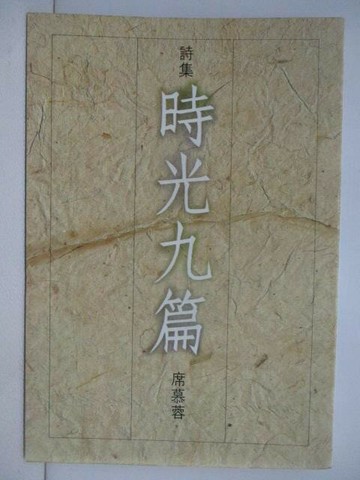 詩集
時光九篇
席慕蓉